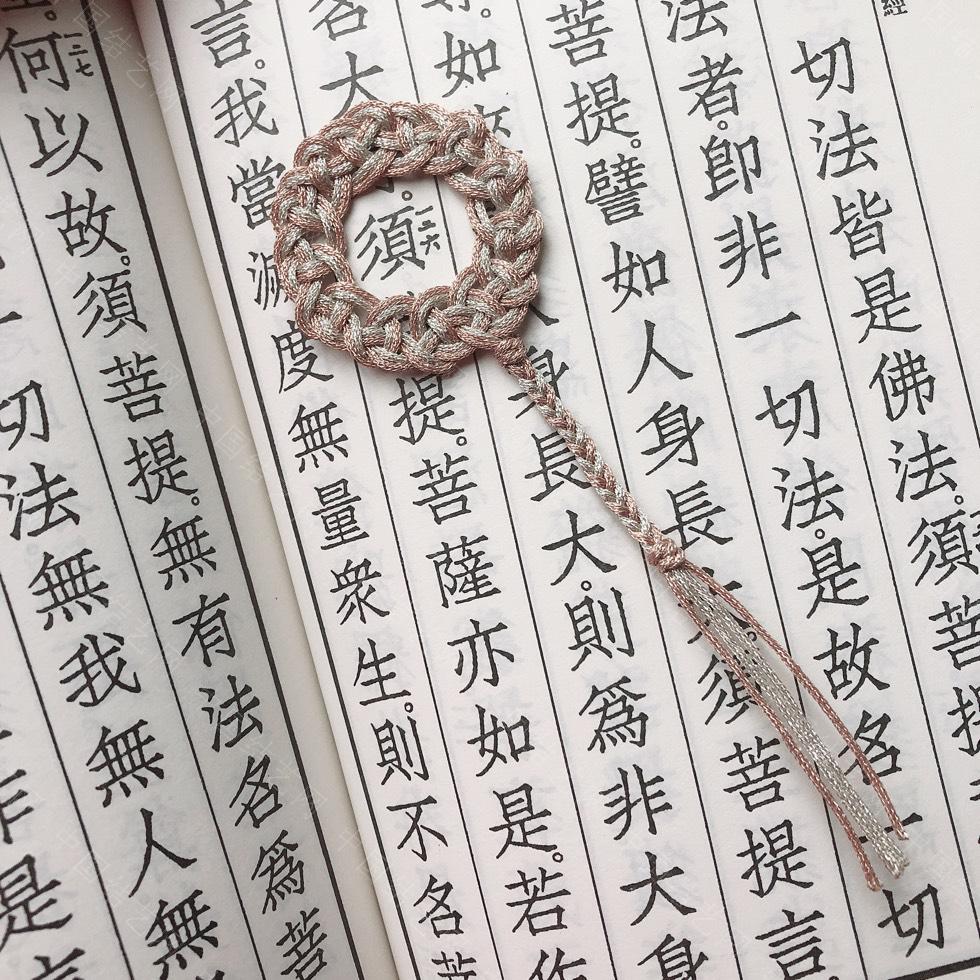 經
切法皆是佛法。須菩提
法者。卽非一切法。是故名一切
菩提。譬如人身長大。須菩提言
尊。如來人身長大。則爲非大身
名大。須一二六提。菩薩亦如是。若作
言。我當滅度無量衆生。則不名菩
何一二七以故。須菩提。無有法名爲菩
一切法無我無人無
非是言